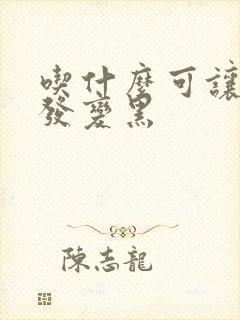 喫什麼可讓
發變黑
陳志龍